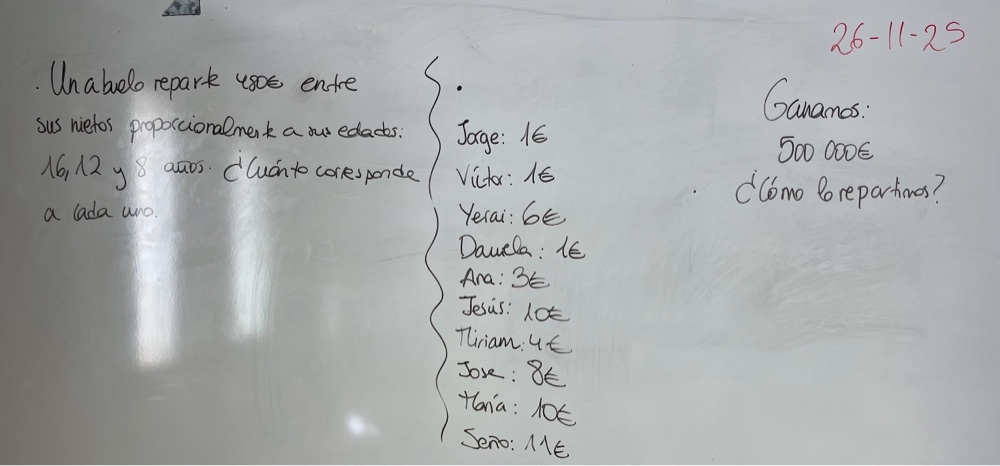 26-11-25
. Un abuelo reparte 480€ entre
sus nietos proporcionalmente a sus edades:
16, 12 y 8 años. ¿Cuánto corresponde
a cada uno.
.
Jorge: 1€
Víctor: 1€
Yerai: 6€
Daniela: 1€
Ana: 3€
Jesús: 10€
Miriam: 4€
Jose: 8€
María: 10€
Seño: 11€
Ganamos:
500 000€
¿Cómo lo repartimos?